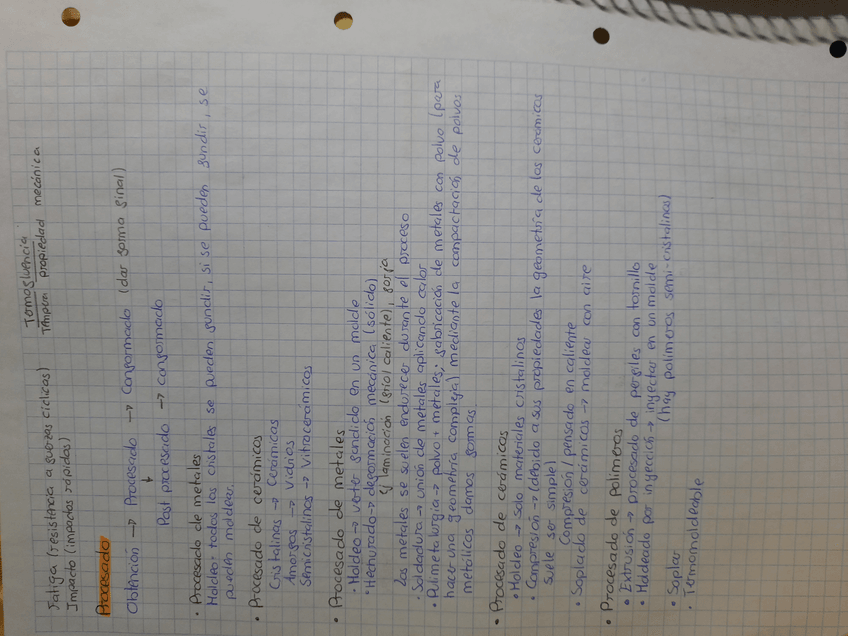 Fatiga (resistencia a fuerzas cíclicas)
Termofluencia
Impacto (impactos rápidos)
Tª/tiempo propiedad mecánica
Procesado
Obtención → Procesado → Conformado (dar forma final)
↓
Post procesado → conformado
• Procesado de metales
Moldeo todos los cristales se pueden fundir, si se pueden fundir, se
pueden moldear.
• Procesado de cerámicos
Cristalinos → Cerámicas
Amorfos → Vidrios
Semicristalinos → Vitrocerámicos
• Procesado de metales
• Moldeo → verter fundido en un molde
• Hechurado → deformación mecánica (sólido)
↳ laminación (frío/caliente), forja
Los metales se suelen endurecer durante el proceso
• Soldadura → unión de metales aplicando calor
• Pulimetalurgia → polvo + metales; fabricación de metales con polvo (para
hacer una geometría compleja) mediante la compactación, de polvos
metálicos damos formas
• Procesado de cerámicos
• Moldeo → solo materiales cristalinos
• Compresión → (debido a sus propiedades la geometría de los cerámicos
suele ser simple)
Compresión / pensado en caliente
• Soplado de cerámicos → moldear con aire
• Procesado de polímeros
• Extrusión → procesado de perfiles con tornillo
• Moldeado por inyección → inyectar en un molde
(hay polímeros semi-cristalinos)
• Soplar
• Termomoldeable